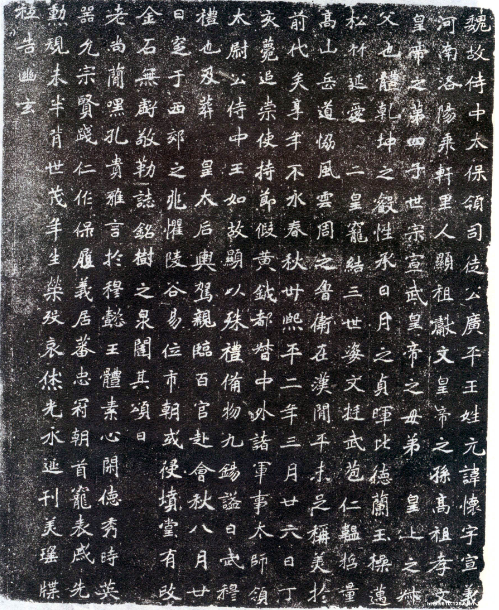 魏故侍中太保領司徒公廣平王姓元諱懷字宣義
河南洛陽乘軒里人顯祖獻文皇帝之孫髙祖孝文
皇帝之第四子世宗宣武皇帝之母弟 皇上之叔
父也體乾坤之叡性承日月之貞暉比德蘭玉操邁
松竹延愛 二皇寵結三世姿文挺武苞仁韞哲量
髙山岳道協風雲周之魯衛在漢間平未足稱美於
前代矣享年不永春秋卅熙平二年三月廿六日丁
亥薨追崇使持節假黄鉞都督中外諸軍事太師領
太尉公侍中王如故顯以殊禮備物九錫謚曰武穆
禮也及葬 皇太后輿駕親臨百官赴會秋八月廿
日窆于西郊之兆懼陵谷易位市朝或侵墳堂有改
金石無虧敬勒誌銘樹之泉闥其頌曰
老尚簡嘿孔貴雅言於穆懿王體素心閑德秀時英
器允宗賢踐仁作保履義居蕃忠冠朝首寵表戚先
勲規未半背世茂年生榮殁哀休光永延刊美瑶牒
祗告幽玄